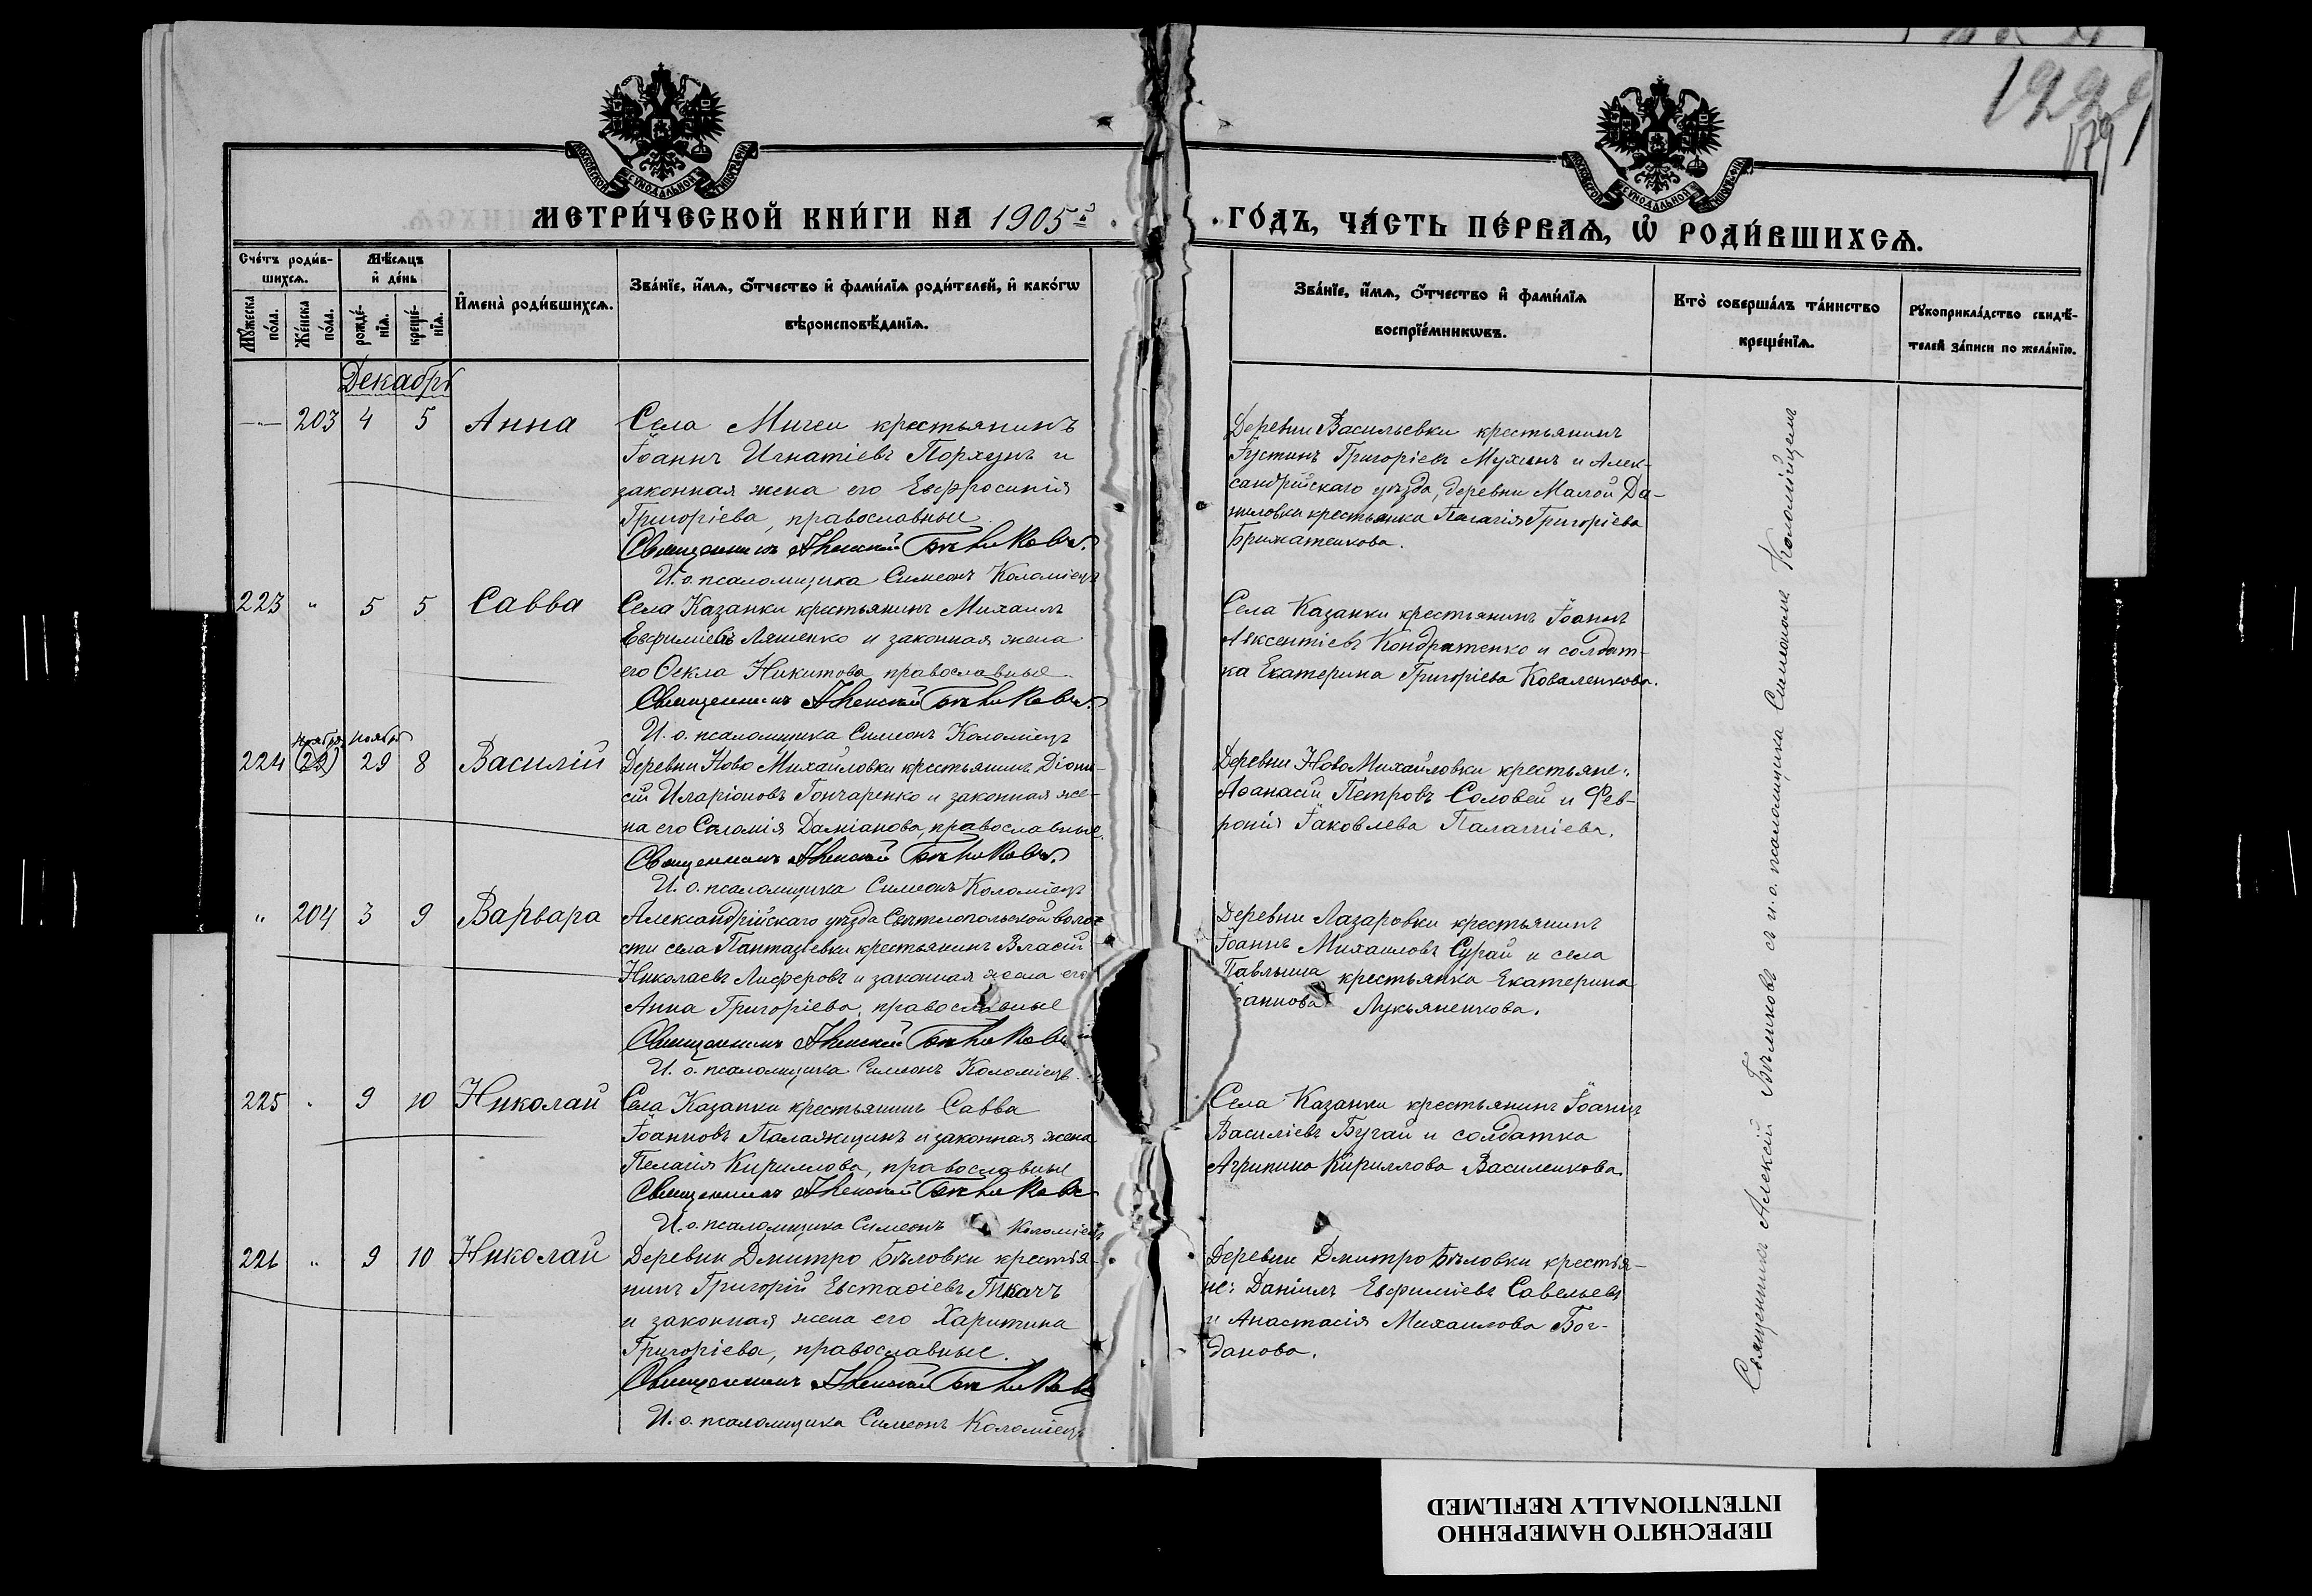 1229
179
МОСКОВСКОЙ СѴНОДАЛЬНОЙ ТИПОГРАФІИ
МОСКОВСКОЙ СѴНОДАЛЬНОЙ ТИПОГРАФІИ
МЕТРИ́ЧЕСКОЙ КНИ́ГИ НА 1905й
ГО́ДЪ, ЧА́СТЬ ПЕ́РВАѦ, Ѡ҆ РОДИ́ВШИХСѦ.
Сче́тъ роди́в-
шихсѧ.
Мѣ́сѧцъ
и҆ де́нь
Мꙋ́жеска
по́ла.
Же́нска
по́ла.
рожде́-
нїѧ.
креще́-
нїѧ.
И҆мена̀ роди́вшихсѧ.
Зва́нїе, и҆́мѧ, ѻ҆́тчество и҆ фами́лїѧ роди́телей, и҆ како́гѡ
вѣроисповѣ́данїѧ.
Зва́нїе, и҆́мѧ, ѻ҆́тчество и҆ фами́лїѧ
воспрїе́мникѡвъ.
Кто̀ соверша́лъ та́инство
креще́нїѧ.
Рꙋкоприкла́дство свидѣ́-
телей за́писи по жела́нїю.
Декабрь
— 203 4 5 Анна
Села Мигеи крестьянинъ
Іоаннъ Игнатіевъ Порхунъ и
законная жена его Евфросинія
Григоріева, православные
Священникъ Алексій Бѣликовъ
И. о. псаломщика Симеонъ Коломіецъ
Деревни Васильевки крестьянинъ
Іустинъ Григоріевъ Мухинъ и Алек-
сандрійскаго уѣзда, деревни Малой Да-
ниловки крестьянка Пелагія Григоріева
223 " 5 5 Савва
Села Казанки крестьянинъ Михаилъ
Евфиміевъ Ляшенко и законная жена
его Ѳекла Никитова православные
Священникъ Алексій Бѣликовъ
И. о. псаломщика Симеонъ Коломіецъ
Села Казанки крестьянинъ Іоаннъ
Авксентіевъ Кондратенко и солдат-
ка Екатерина Григоріева Коваленкова.
Ноября Ноябрь
224 (29) 29 8 Василій
Деревни Ново Михайловки крестьянинъ Діони-
сій Иларіоновъ Гончаренко и законная же-
на его Саломія Даміанова, православные.
Священникъ Алексій Бѣликовъ
И. о. псаломщика Симеонъ Коломіецъ
Деревни Ново Михайловки крестьяне:
Аѳанасій Петровъ Соловей и Фев-
ронія Іаковлева
" 204 3 9 Варвара
Александрійскаго уѣзда Свѣтлопольской воло-
сти села Пантазіевки крестьянинъ Власій
Николаевъ Лиферовъ и законная жена его
Анна Григоріева, православные
Священникъ Алексій Бѣликовъ
И. о. псаломщика Симеонъ Коломіецъ
Деревни Лазаровки крестьянинъ
Іоаннъ Михаиловъ Сугай и села
Павлыша крестьянка Екатерина
Іоаннова Лукьяненкова.
225 " 9 10 Николай
Села Казанки крестьянинъ Савва
Іоанновъ Паламжщинъ и законная жена
Пелагія Кириллова, православные
Священникъ Алексій Бѣликовъ
И. о. псаломщика Симеонъ Коломіецъ
Села Казанки крестьянинъ Іоаннъ
Василіевъ Бугай и солдатка
Агрипина Кириллова Василенкова.
226 " 9 10 Николай
Деревни Дмитро Бѣловки крестья-
нинъ Григорій Евстаѳіевъ Ткачъ
и законная жена его Харитина
Григоріева, православные.
Священникъ Алексій Бѣликовъ
И. о. псаломщика Симеонъ Коломіецъ
Деревни Дмитро Бѣловки крестья-
не: Даніилъ Евфиміевъ Савельевъ
и Анастасія Михаилова Бог-
данова.
Священникъ Алексій Бѣликовъ съ и. о. псаломщика Симеономъ Коломійцемъ
ПЕРЕСНЯТО НАМЕРЕННО
INTENTIONALLY REFILMED